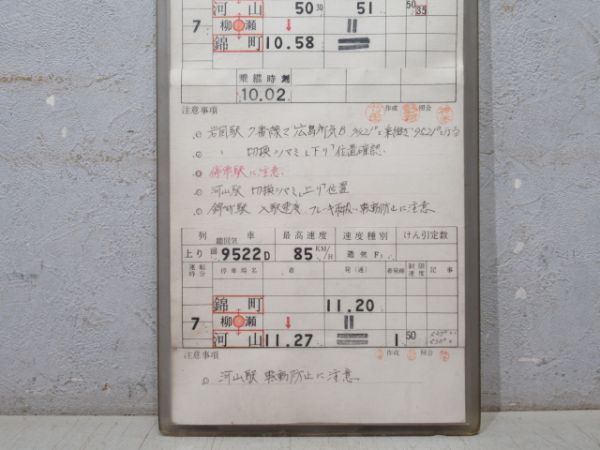 河山 50 30 51 50 35
7 柳瀬 ↓ ||
錦町 10.58 =
乗継時刻
10.02
注意事項 作成 照合
岩国駅 7番線で広島所気
切換ツマミ 下り位置確認
停車駅に注意
河山駅 切換ツマミ上り位置
錦町駅 入駅速度 ブレーキ扱い 転動防止に注意
列車 最高速度 速度種別 けん引定数
上り 9522D 85 KM/H 通気
運転時分 停車場名 着 発(通) 着発線 制限速度 記事
錦町 11.20
7 柳瀬 ↓ ||
河山 11.27 = 1 50
注意事項 作成 照合
河山駅 転動防止に注意